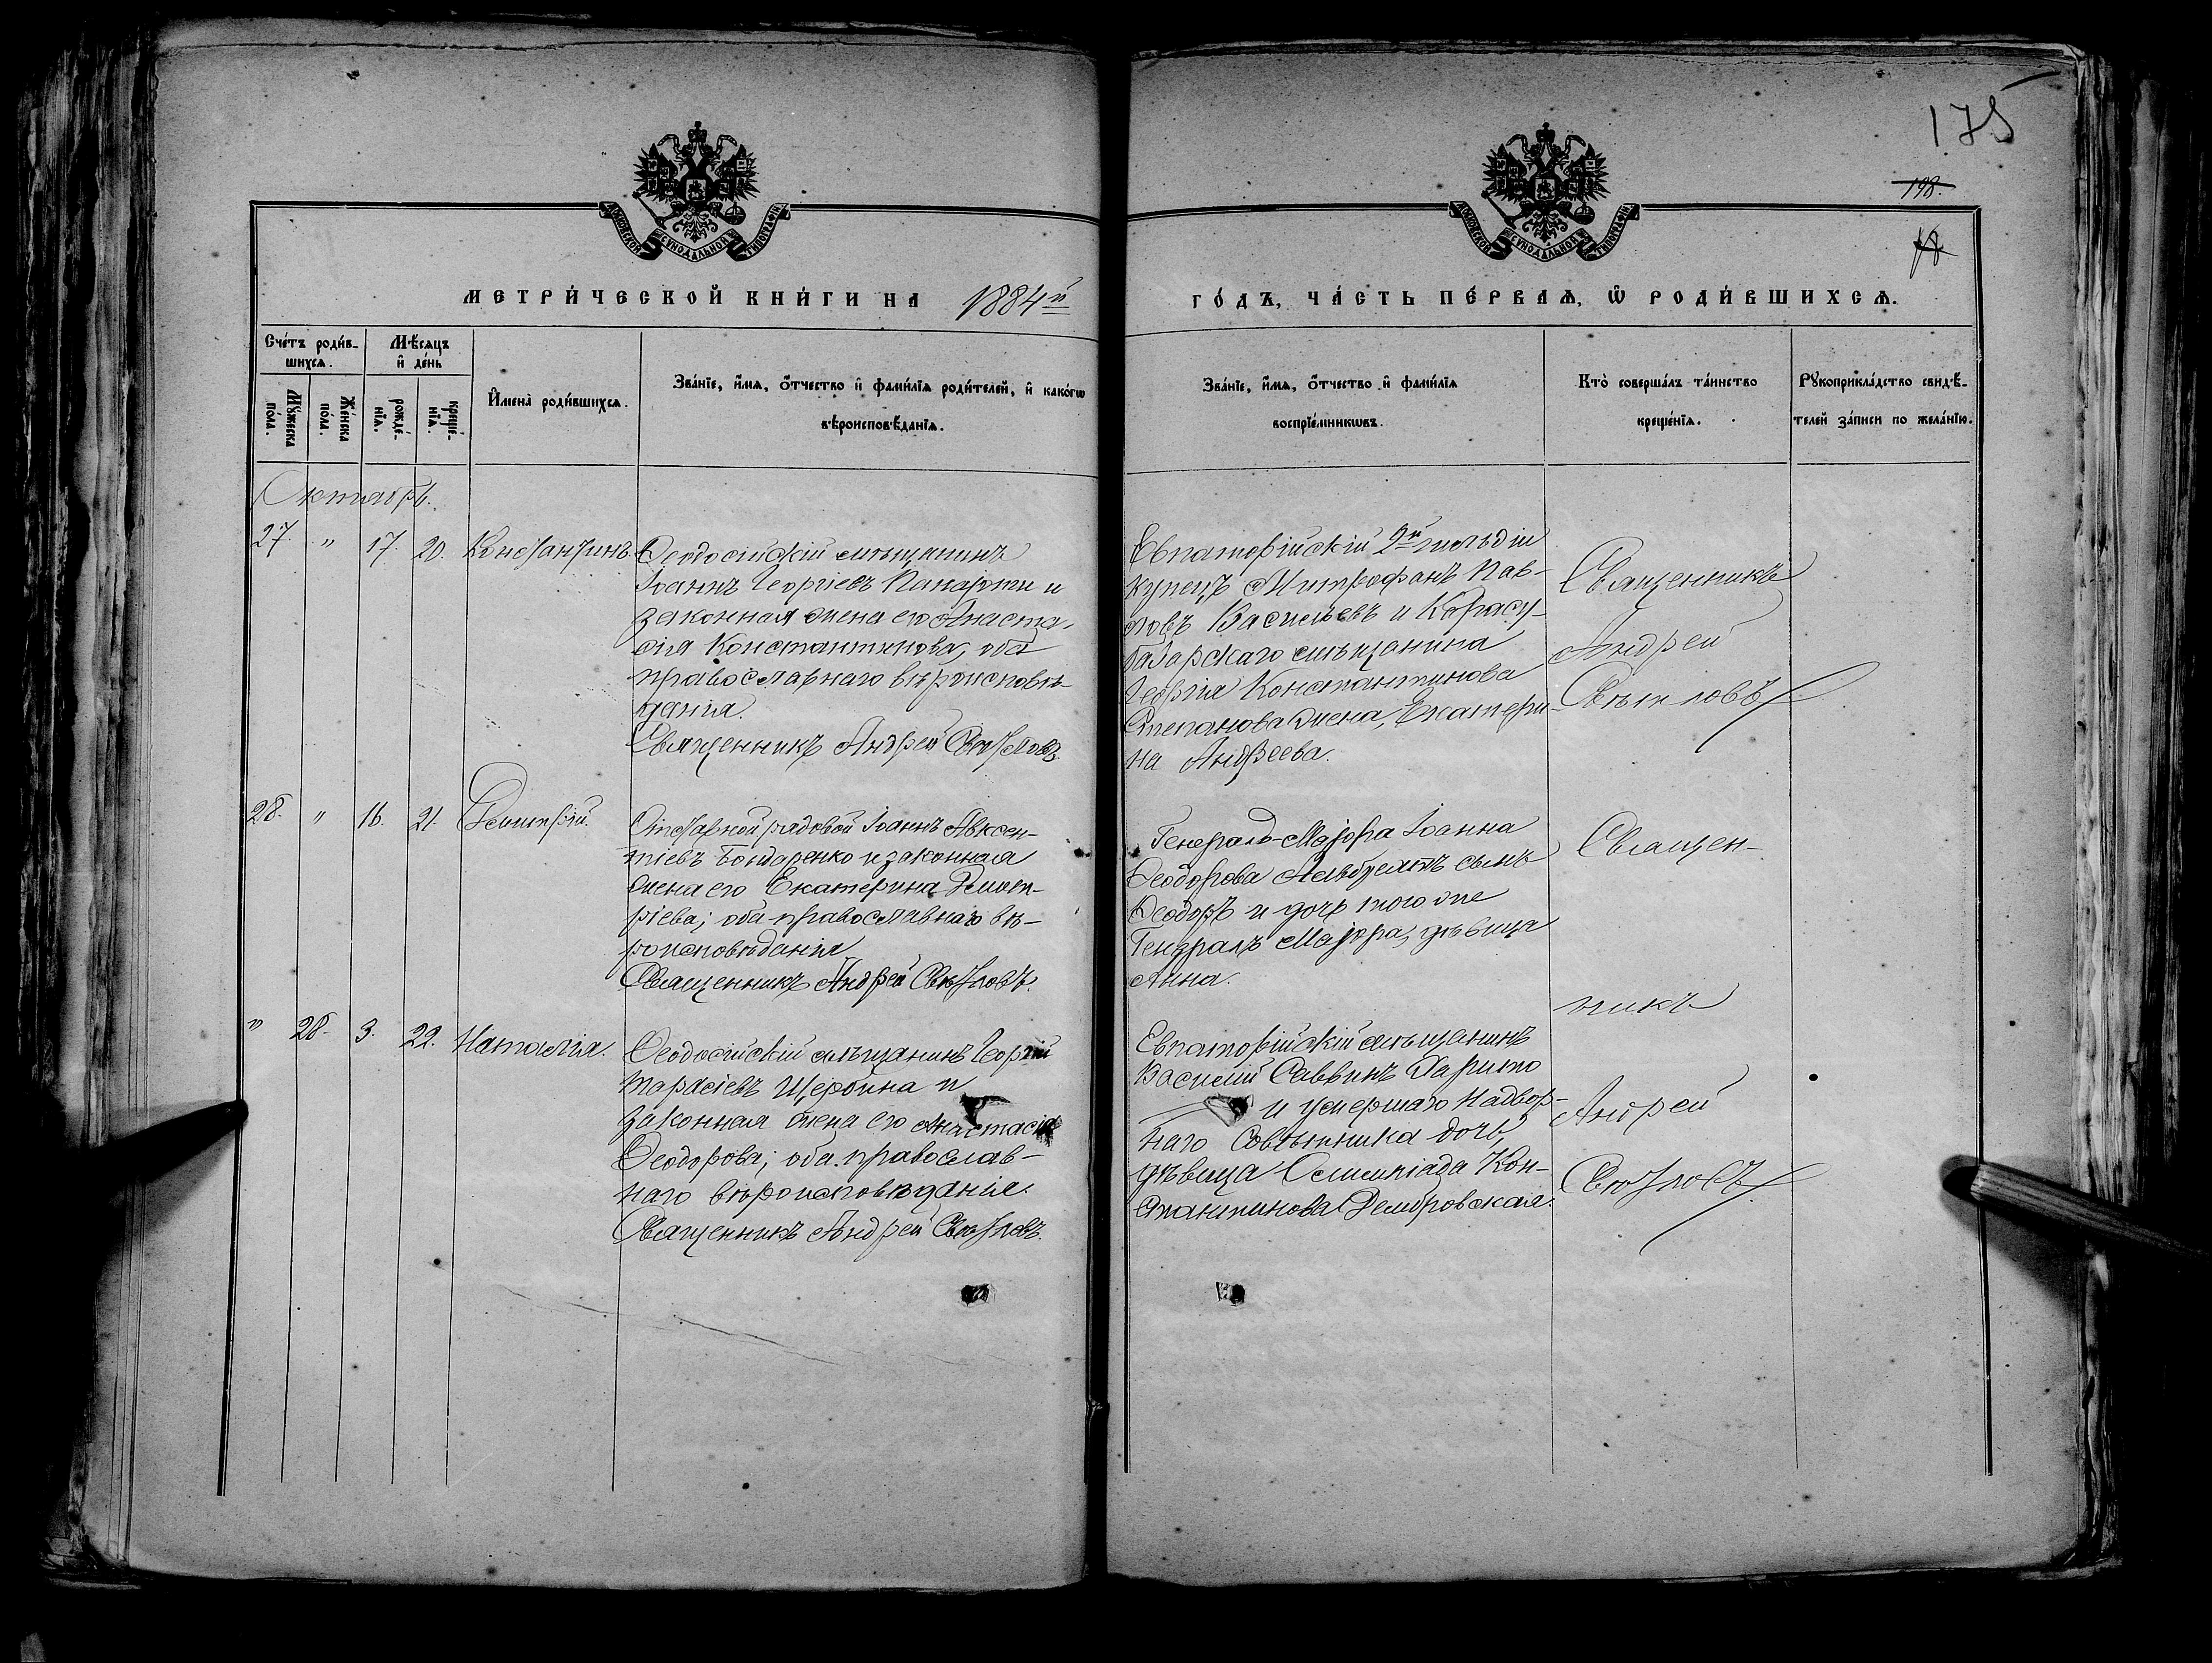 175
198.
78
МОСКОВСКОЙ СѴНОДАЛЬНОЙ ТИПОГРАФІИ
МОСКОВСКОЙ СѴНОДАЛЬНОЙ ТИПОГРАФІИ
МЕТРИ́ЧЕСКОЙ КНИ́ГИ НА 1884й
ГО́ДЪ, ЧА́СТЬ ПЕ́РВАѦ, Ѡ РОДИ́ВШИХСѦ.
Сче́тъ роди́в-
шихсѧ.
Мꙋ́жеска
по́ла.
Же́нска
по́ла.
Мѣ́сѧцъ
и҆ де́нь
рожде́-
нїѧ.
креще́-
нїѧ.
И҆мена̀ роди́вшихсѧ.
Зва́нїе, и҆́мѧ, ѻ҆́тчество и҆ фами́лїѧ роди́телей, и҆ како́гѡ
вѣроисповѣ́данїѧ.
Зва́нїе, и҆́мѧ, ѻ҆́тчество и҆ фами́лїѧ
воспрїе́мникѡвъ.
Кто̀ соверша́лъ та́инство
креще́нїѧ.
Рꙋкоприкла́дство свидѣ́-
телей за́писи по жела́нїю.
Октябрь.
27. " 17. 20. Константинъ
Ѳеодосійскій мѣщанинъ
Іоаннъ Георгіевъ Панаіоти и
законная жена его Анаста-
сія Константинова, оба
православнаго вѣроисповѣ-
данія.
Священникъ Андрей Свѣтловъ.
Евпаторійскій 2й гильдіи
купецъ Митрофанъ Пав-
ловъ Васильевъ и Карасу-
базарскаго мѣщанина
Георгія Константинова
Степанова жена, Екатери-
на Андреева.
Священникъ
Андрей
Свѣтловъ
28. " 16. 21. Димитрій.
Отставной рядовой Іоаннъ Авксен-
тіевъ Бондаренко и законная
жена его Екатерина Димит-
ріева; оба православнаго вѣ-
роисповѣданія
Священникъ Андрей Свѣтловъ.
Генералъ-Маіора Іоанна
Ѳеодорова сынъ
Ѳеодоръ и дочь того же
Генералъ Маіора, дѣвица
Анна.
Священ-
никъ
" 28. 3. 22. Наталія.
Ѳеодосійскій мѣщанинъ Георгій
Тарасіевъ Щербина и
законная жена его Анастасія
Ѳеодорова; оба православ-
наго вѣроисповѣданія.
Священникъ Андрей Свѣтловъ.
Евпаторійскій мѣщанинъ
Василій Саввинъ Харито
и умершаго Надвор-
наго Совѣтника дочь,
дѣвица Олимпіада Кон-
стантинова Дембровская.
Андрей
Свѣтловъ